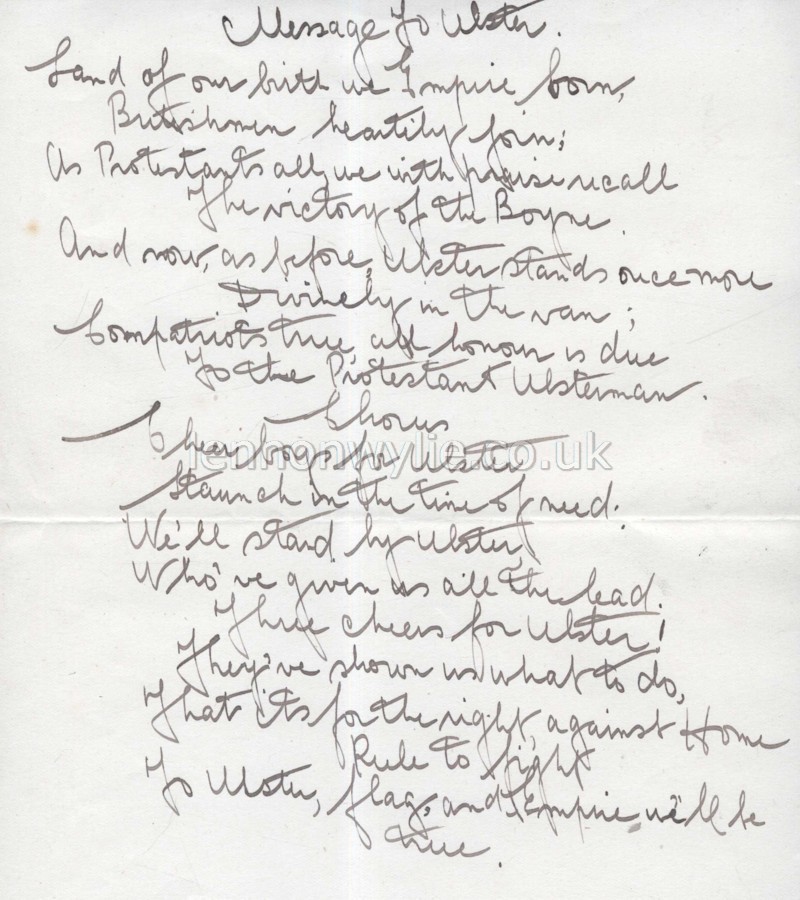 Message To Ulster.
Land of our birth we Empire born,
Britishmen heartily join;
As Protestants all, we with praise recall
The victory of the Boyne.
And now, as before, Ulster stands once more
Divinely in the van;
Compatriots true, all honour is due
To the Protestant Ulsterman.
Chorus
Cheer boys for Ulster
lennonwylie.co.uk
Staunch in the time of need.
We'll stand by Ulster,
Who've given us all the lead.
Three cheers for Ulster!
They've shown us what to do,
That its for the right, against Home
Rule to fight
To Ulster, flag, and Empire we'll be
true.